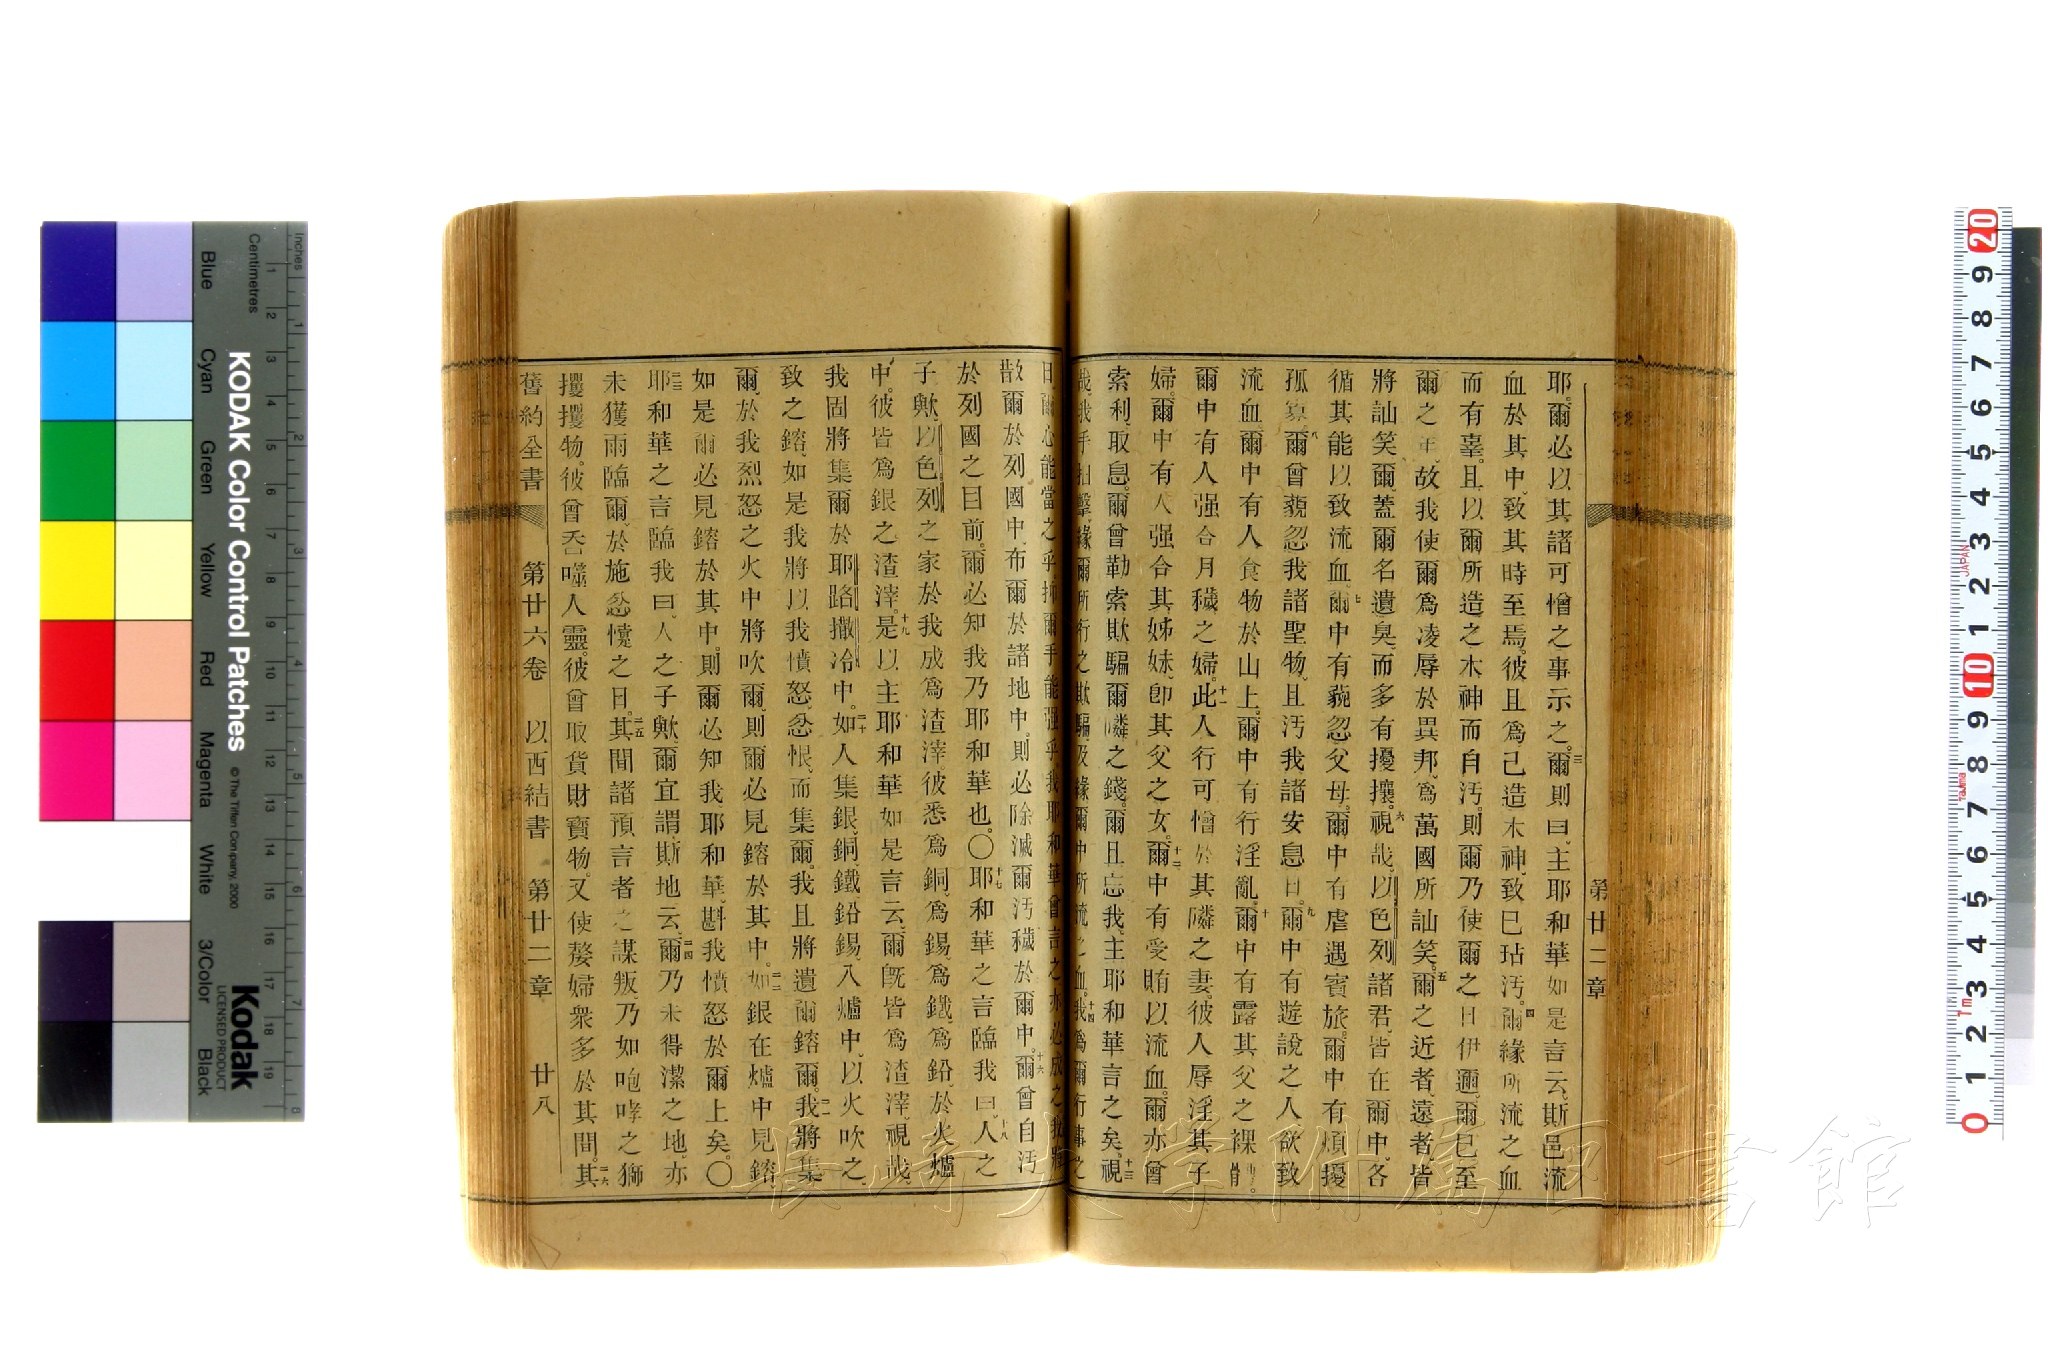 耶。爾必以其諸可憎之事示之。三爾則曰、主耶和華如是言云、斯邑流
血於其中、致其時至焉。彼且爲己造木神、致己玷汚。四爾緣所流之血
而有辜。且以爾所造之木神而自汚。則爾乃使爾之日伊邇、爾已至
爾之年。故我使爾爲凌辱於異邦、爲萬國所訕笑。五爾之近者、遠者皆
將訕笑爾、蓋爾名遺臭、而多有擾攘。六視哉、以色列諸君、皆在爾中、各
循其能以致流血。七爾中有藐忽父母。爾中有虐遇賓旅。爾中有煩擾
孤寡。八爾曾藐忽我諸聖物、且汚我諸安息日。九爾中有遊說之人欲致
流血。爾中有人食物於山上。爾中有行淫亂。十爾中有露其父之裸
爾中有人强合月穢之婦。十一此人行可憎於其隣之妻。彼人辱淫其子
婦。爾中有人强合其姊妹、卽其父之女。十二爾中有受賄以流血。爾亦曾
索利、取息。爾曾勒索欺騙爾隣之錢。爾且忘我、主耶和華言之矣。十三視
哉、我手拍擊、緣爾所行之欺騙、及緣爾中所流之血。十四我爲爾行事之
日、爾心能當之乎、抑爾手能强乎、我耶和華曾言之、亦必成之、我將
散爾於列國中、布爾於諸地中、則必除滅爾汚穢於爾中。十六爾曾自汚
於列國之目前。爾必知我乃耶和華也。〇十七耶和華之言臨我曰、十八人之
子歟、以色列之家於我成爲渣滓、彼悉爲銅、爲錫、爲鐵、爲鉛、於火爐
中。彼皆爲銀之渣滓。十九是以主耶和華如是言云、爾旣皆爲渣滓、視哉、
我固將集爾於耶路撒冷中。二十如人集銀、銅、鐵、鉛、錫、入爐中、以火吹之、
致之鎔、如是我將以我憤怒、忿恨、而集爾。我且將遺爾鎔爾。二一我將集
爾、於我烈怒之火中將吹爾、則爾必見鎔於其中。二二如銀在爐中見鎔、
如是爾必見鎔於其中、則爾必知我耶和華、斟我憤怒於爾上矣。〇
二三耶和華之言臨我曰、人之子歟爾宜謂斯地云、二四爾乃未得潔之地、亦
未獲雨臨爾、於施忿懥之日。二五其間諸預言者之謀叛、乃如咆哮之獅
攫攫物。彼曾吞噬人靈。彼曾取貨財寶物。又使嫠婦衆多於其間。二六其
舊約全書 第廿六卷 以西結書 第廿二章 廿八
第廿二章
長崎大学附属図書館
KODAK Color Control Patches
© The Tiffen Company, 2000
Kodak
LICENSED PRODUCT
Inches
Centimetres
Blue
Cyan
Green
Yellow
Red
Magenta
White
3/Color
Black
JAPAN
Tajima